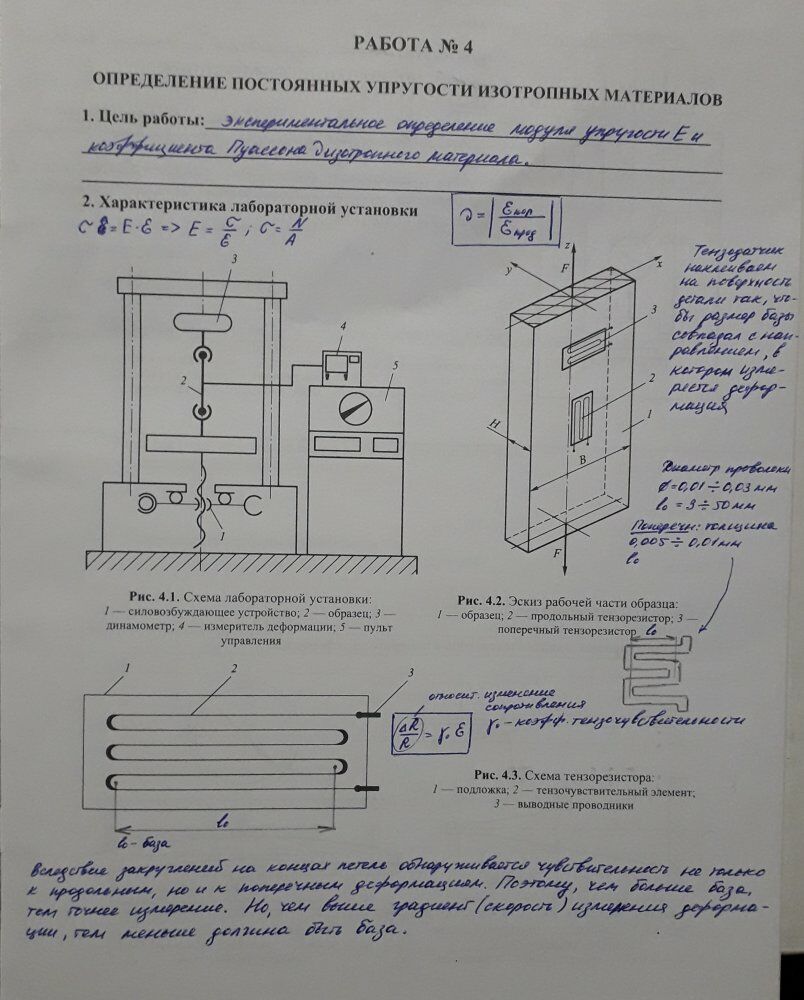 РАБОТА № 4
ОПРЕДЕЛЕНИЕ ПОСТОЯННЫХ УПРУГОСТИ ИЗОТРОПНЫХ МАТЕРИАЛОВ
1. Цель работы: экспериментальное определение модуля упругости E и
коэффициента Пуассона изотропного материала.
2. Характеристика лабораторной установки
= E·ε => E = σ/ε ; σ = N/A
ν = |εпоп/εпрод|
3
4
5
2
1
z
y
F
x
3
2
1
H
B
F
Тензодатчик
наклеиваем
на поверхность
детали так, что-
бы размер базы
совпадал с нап-
равлением, в
котором изме-
ряется дефор-
мация
Диаметр проволоки
ø=0,01÷0,03 мм
l₀ = 3÷50мм
Поперечн: толщина
0,005÷0,01мм
l₀
Рис. 4.1. Схема лабораторной установки:
1 — силовозбуждающее устройство; 2 — образец; 3 —
динамометр; 4 — измеритель деформации; 5 — пульт
управления
Рис. 4.2. Эскиз рабочей части образца:
1 — образец; 2 — продольный тензорезистор; 3 —
поперечный тензорезистор
l₀
1
2
3
относит. изменение
сопротивления
ΔR/R = γ₀ ε
γ₀ - коэфф. тензочувствительности
l₀
l₀ - база
Рис. 4.3. Схема тензорезистора:
1 — подложка; 2 — тензочувствительный элемент;
3 — выводные проводники
Вследствие закруглений на концах петель обнаруживается чувствительность не только
к продольным, но и к поперечным деформациям. Поэтому, чем больше база,
тем точнее измерение. Но, чем выше градиент (скорость) измерения деформа-
ции, тем меньше должна быть база.